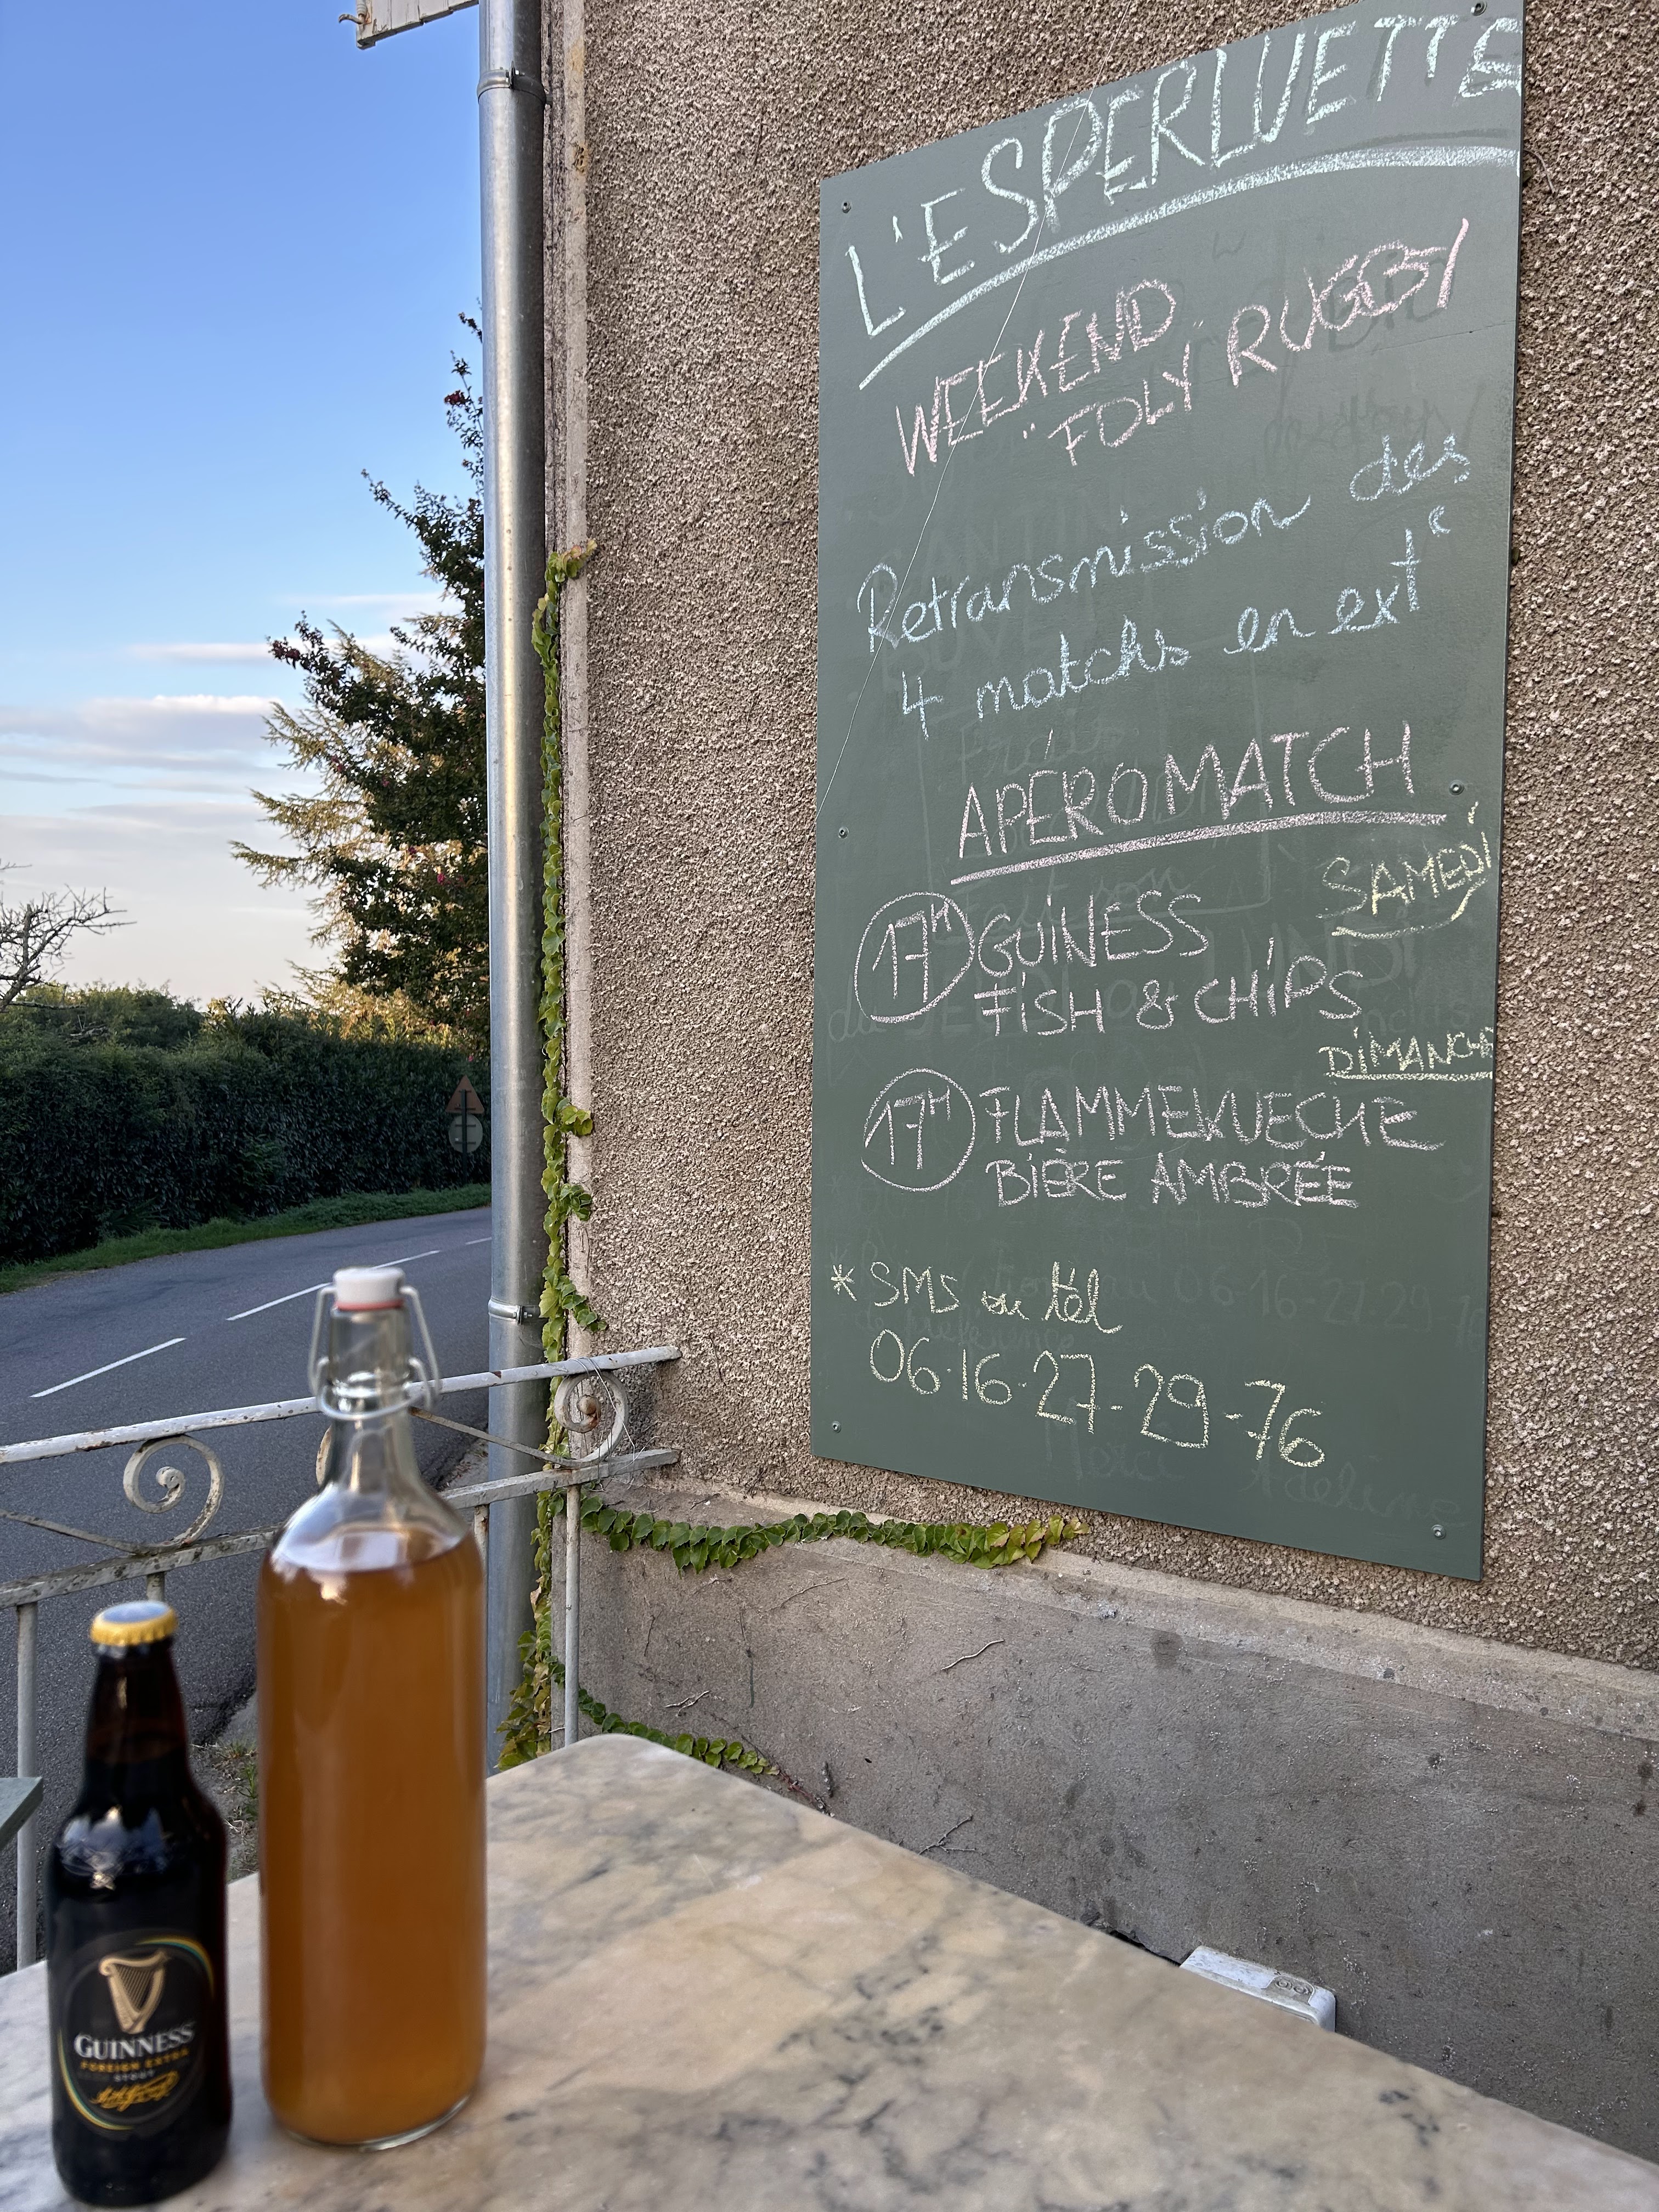 L'ESPERLUETTE
WEEKEND
"FOLY" RUGBY
Retransmission des
4 matchs en extr
APÉRO MATCH
SAMEDI
17H GUINESS
FISH & CHIPS
DIMANCHE
17H FLAMMEKUECHE
BIÈRE AMBRÉE
* SMS ou tél
06.16.27-29-76
GUINNESS
FOREIGN EXTRA
STOUT